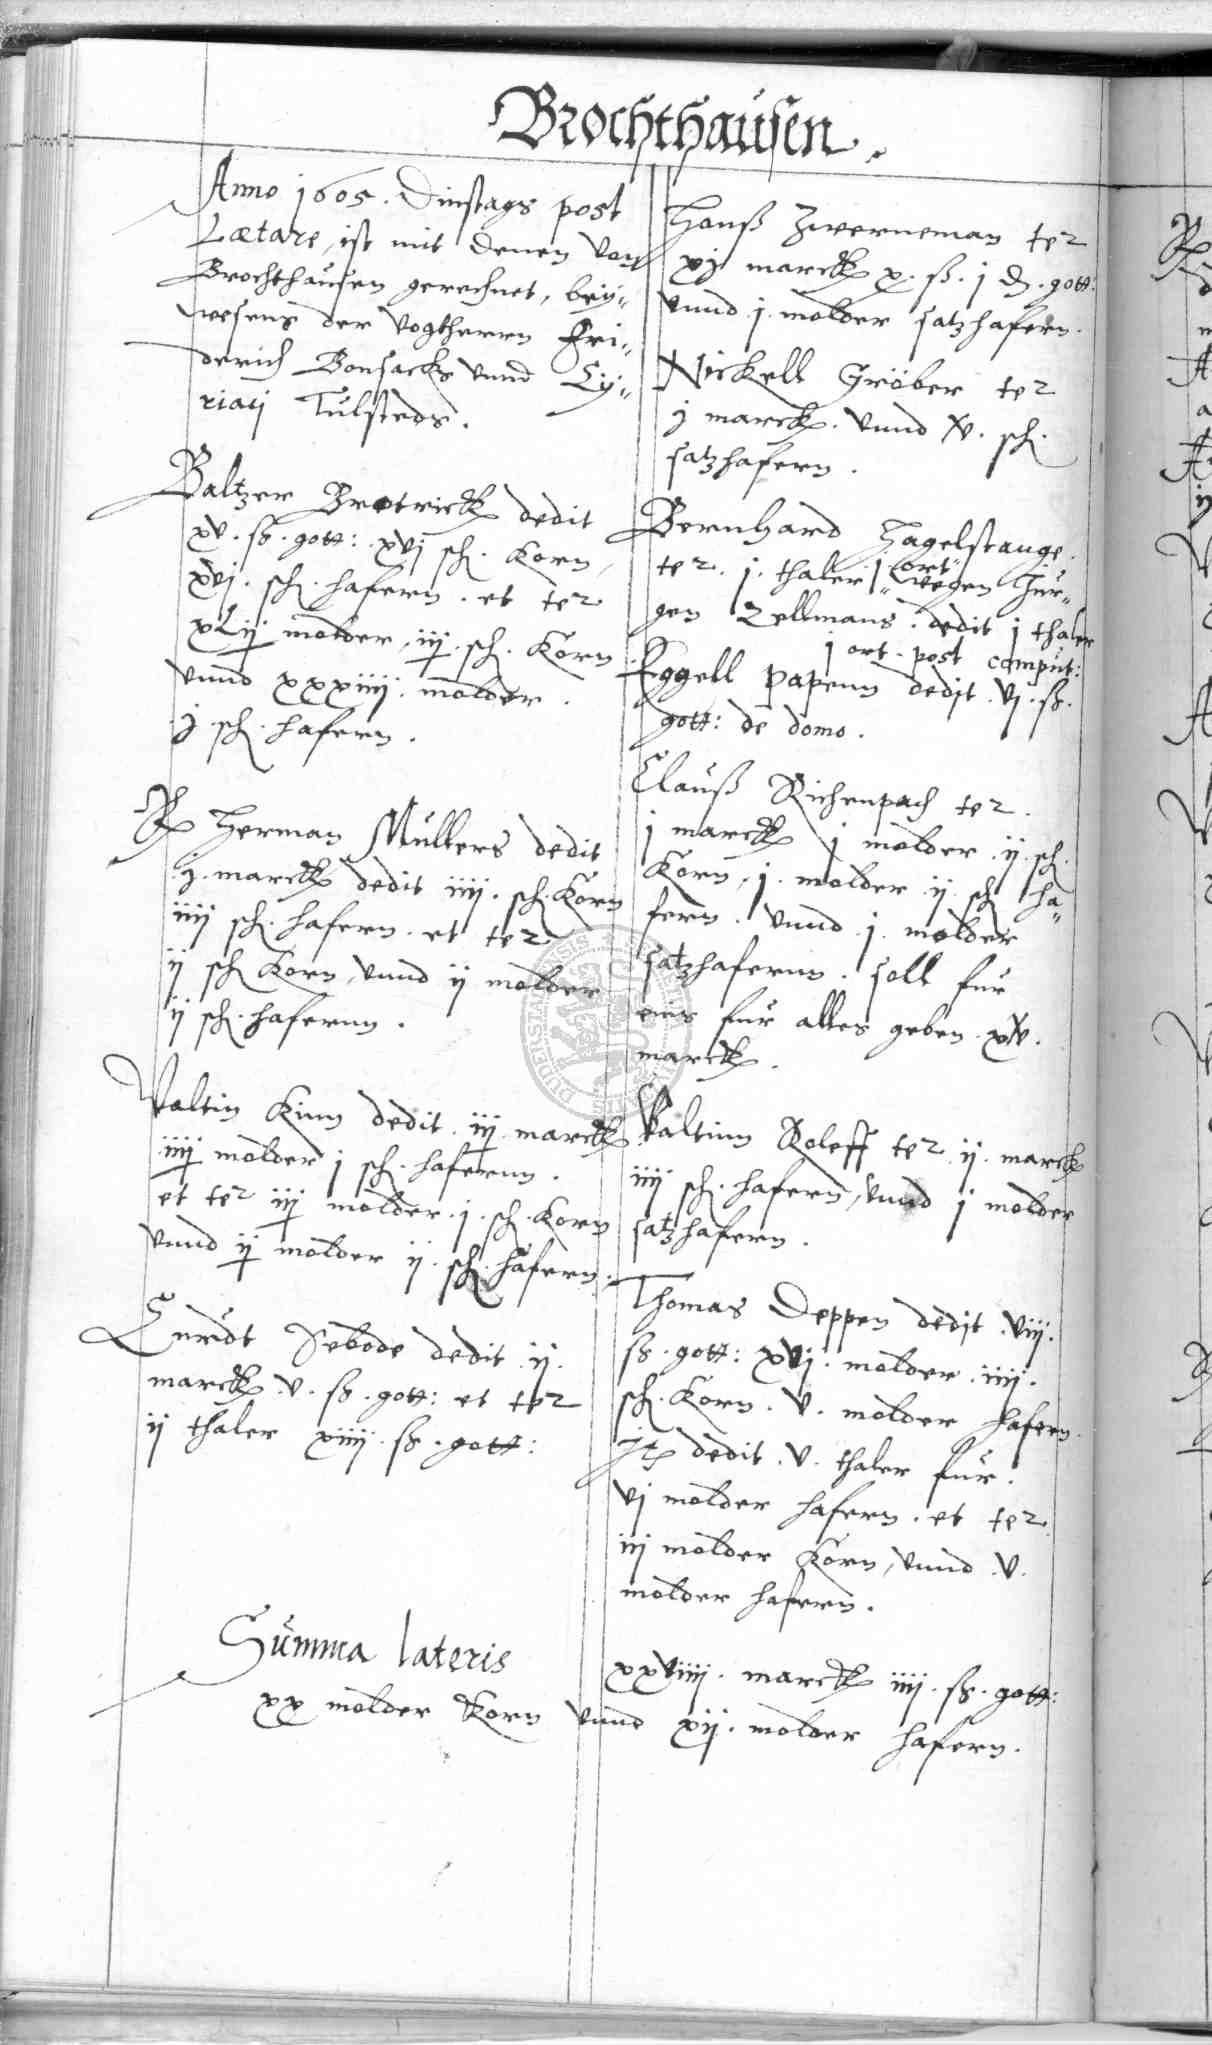 Brochthausen.
Anno 1605. Dinstags post
Lætare, ist mit denen von
Brochthausen gerechnet, bey-
wesens der Vogtherrn Fri-
derich Bonsacks vnnd Cy-
riaci Tulsteds.
Baltzer Brotrick dedit
xv. ß. gott: xvj sch. Korn,
xvj. sch. hafern. et ter
molder, iij. sch. Korn
vnnd xxxiiij. molder
j. sch. hafern.
R Herman Mullers dedit
j. marck dedit iiij. sch. Korn
iiij sch. hafern. et ter
ij sch Korn, vnnd ij molder
ij sch. hafernn.
Valtin Kinn dedit iij marck
iiij molder j sch. hafernn.
et ter iij molder. j. sch. Korn
vnnd ij molder ij. sch. hafern.
Curdt Sebode dedit ij.
marck. v. ß. gott: et ter
ij thaler xiiij. ß. gott:
Hanß Zwerneman ter
xj marck x. ß. j d. gott:
vnnd j. molder satzhafern.
Nickell Gröber ter
j marck. vnnd v. sch.
satzhafern.
Bernhard Hagelstange
ter. j. thaler j ort wegen Jür-
gen Zellmans. dedit j thaler
j ort. post comput:
Eggell Papenn dedit vj. ß.
gott: de domo.
Clauß Richenpach ter.
j marck j molder. ij. sch.
Korn, j. molder ij. sch ha-
fern. vnnd j. molder
satzhafernn. soll fur
eins fur alles geben. xv.
marck.
Valtinn Roleff ter ij. marck
iiij sch. hafern, vnnd j molder
satzhafern.
Thomas Deppen dedit viij.
ß. gott: xvj. molder. iiij.
sch. Korn. v. molder hafern.
Jt dedit v. thaler fur.
vj molder hafern. et ter
iij molder Korn, vnnd v.
molder hafern.
Summa lateris xxviiij. marck iiij. ß. gott:
xx molder Korn vnnd xij. molder hafern.